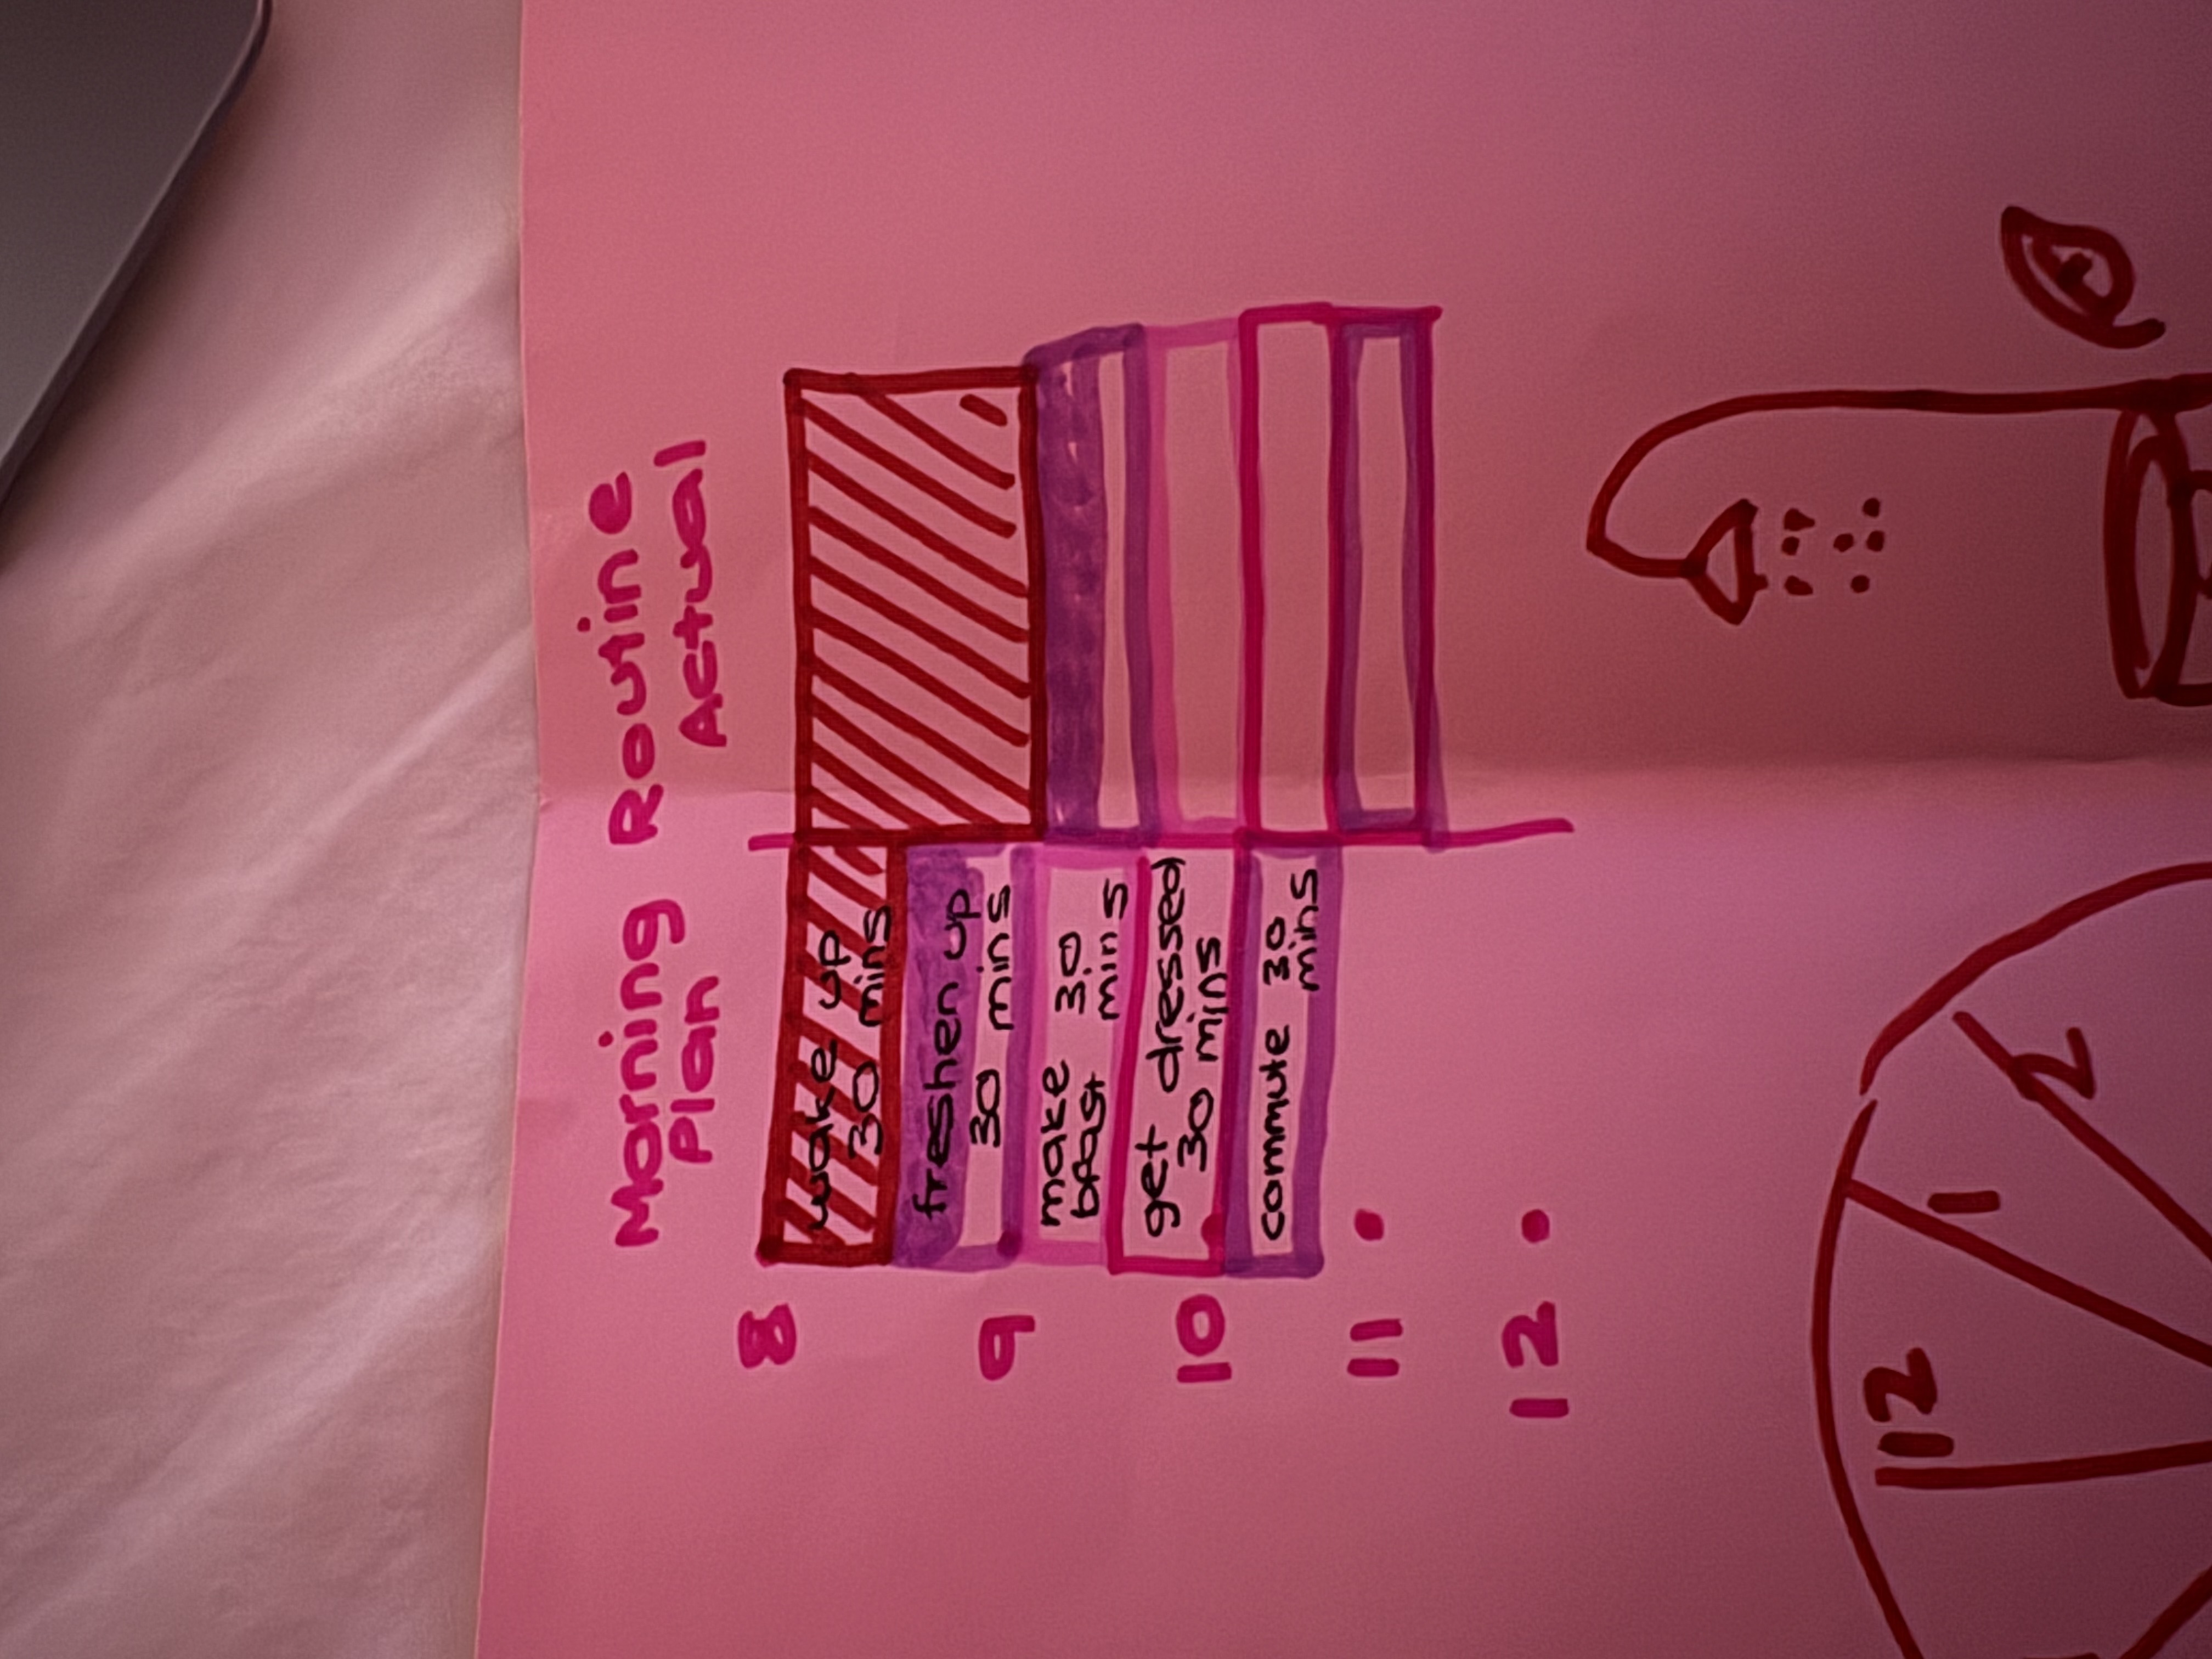 Morning Routine
Plan Actual
8
wake up
30 mins
freshen up
30 mins
9
make 30
bfast mins
get dressed
30 mins
10
commute 30
mins
11
12
12
1
2